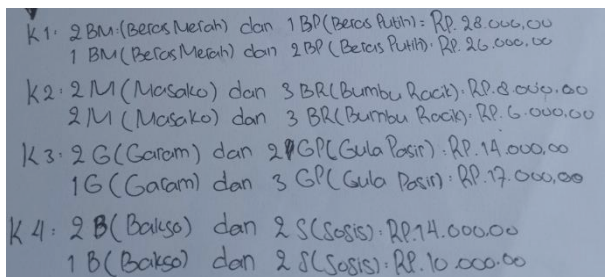 K1. 2 BM (Beras Merah) dan 1 BP (Beras Putih) : RP. 28.000,00
1 BM (Beras Merah) dan 2 BP (Beras Putih) . RP. 26.000,00
K2 : 2 M (Masako) dan 3 BR (Bumbu Racik) . RP. 8.000,00
2 M (Masako) dan 3 BR (Bumbu Racik) . RP. 6.000,00
K3 : 2 G (Garam) dan 2 GP (Gula Pasir) : RP. 14.000,00
1 G (Garam) dan 3 GP (Gula Pasir) : RP. 17.000,00
K4 : 2 B (Bakso) dan 2 S (Sosis) : RP. 14.000.00
1 B (Bakso) dan 2 S (Sosis) : RP. 10.000.00